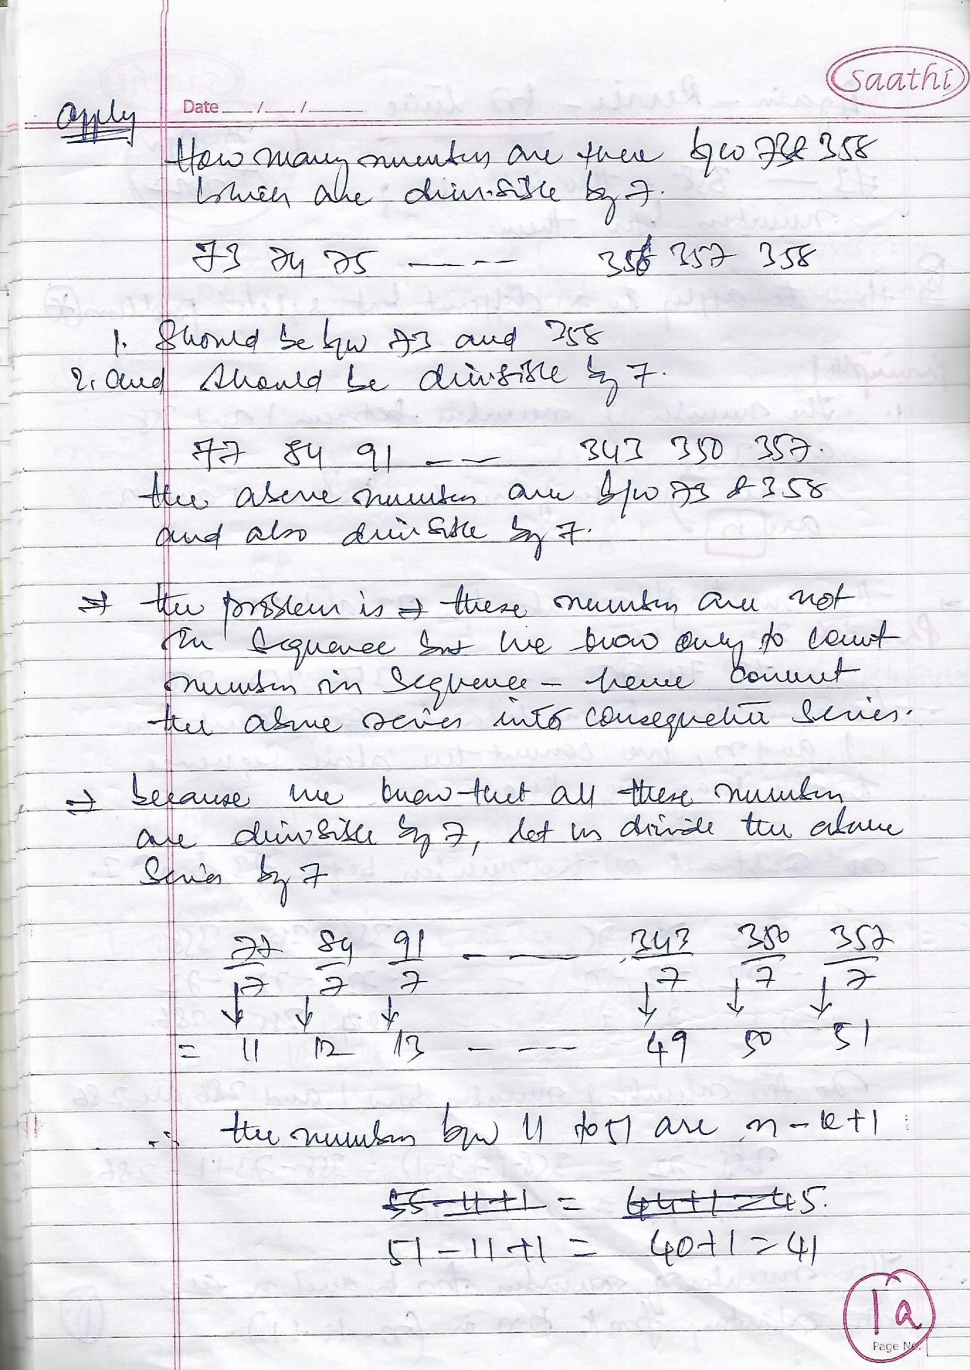 Saathi
Apply
Date ___/___/______
How many numbers are there b/w 73 & 358
which are divisible by 7.
73 74 75 ---- 356 357 358
1. Should be b/w 73 and 358
2. and should be divisible by 7.
77 84 91 --- 343 350 357.
the above numbers are b/w 73 & 358
and also divisible by 7.
⇒ the problem is → these numbers are not
in sequence but we know only to count
numbers in sequence - hence convert
the above series into consequetive series.
⇒ because we know that all these numbers
are divisible by 7, let us divide the above
series by 7
77/7 84/7 91/7 ---- 343/7 350/7 357/7
↓ ↓ ↓ ↓ ↓ ↓
= 11 12 13 - --- 49 50 51
∴ the numbers b/w 11 to 51 are n-k+1
55-11+1 = 44+1=45.
51-11+1 = 40+1=41
1a
Page No.